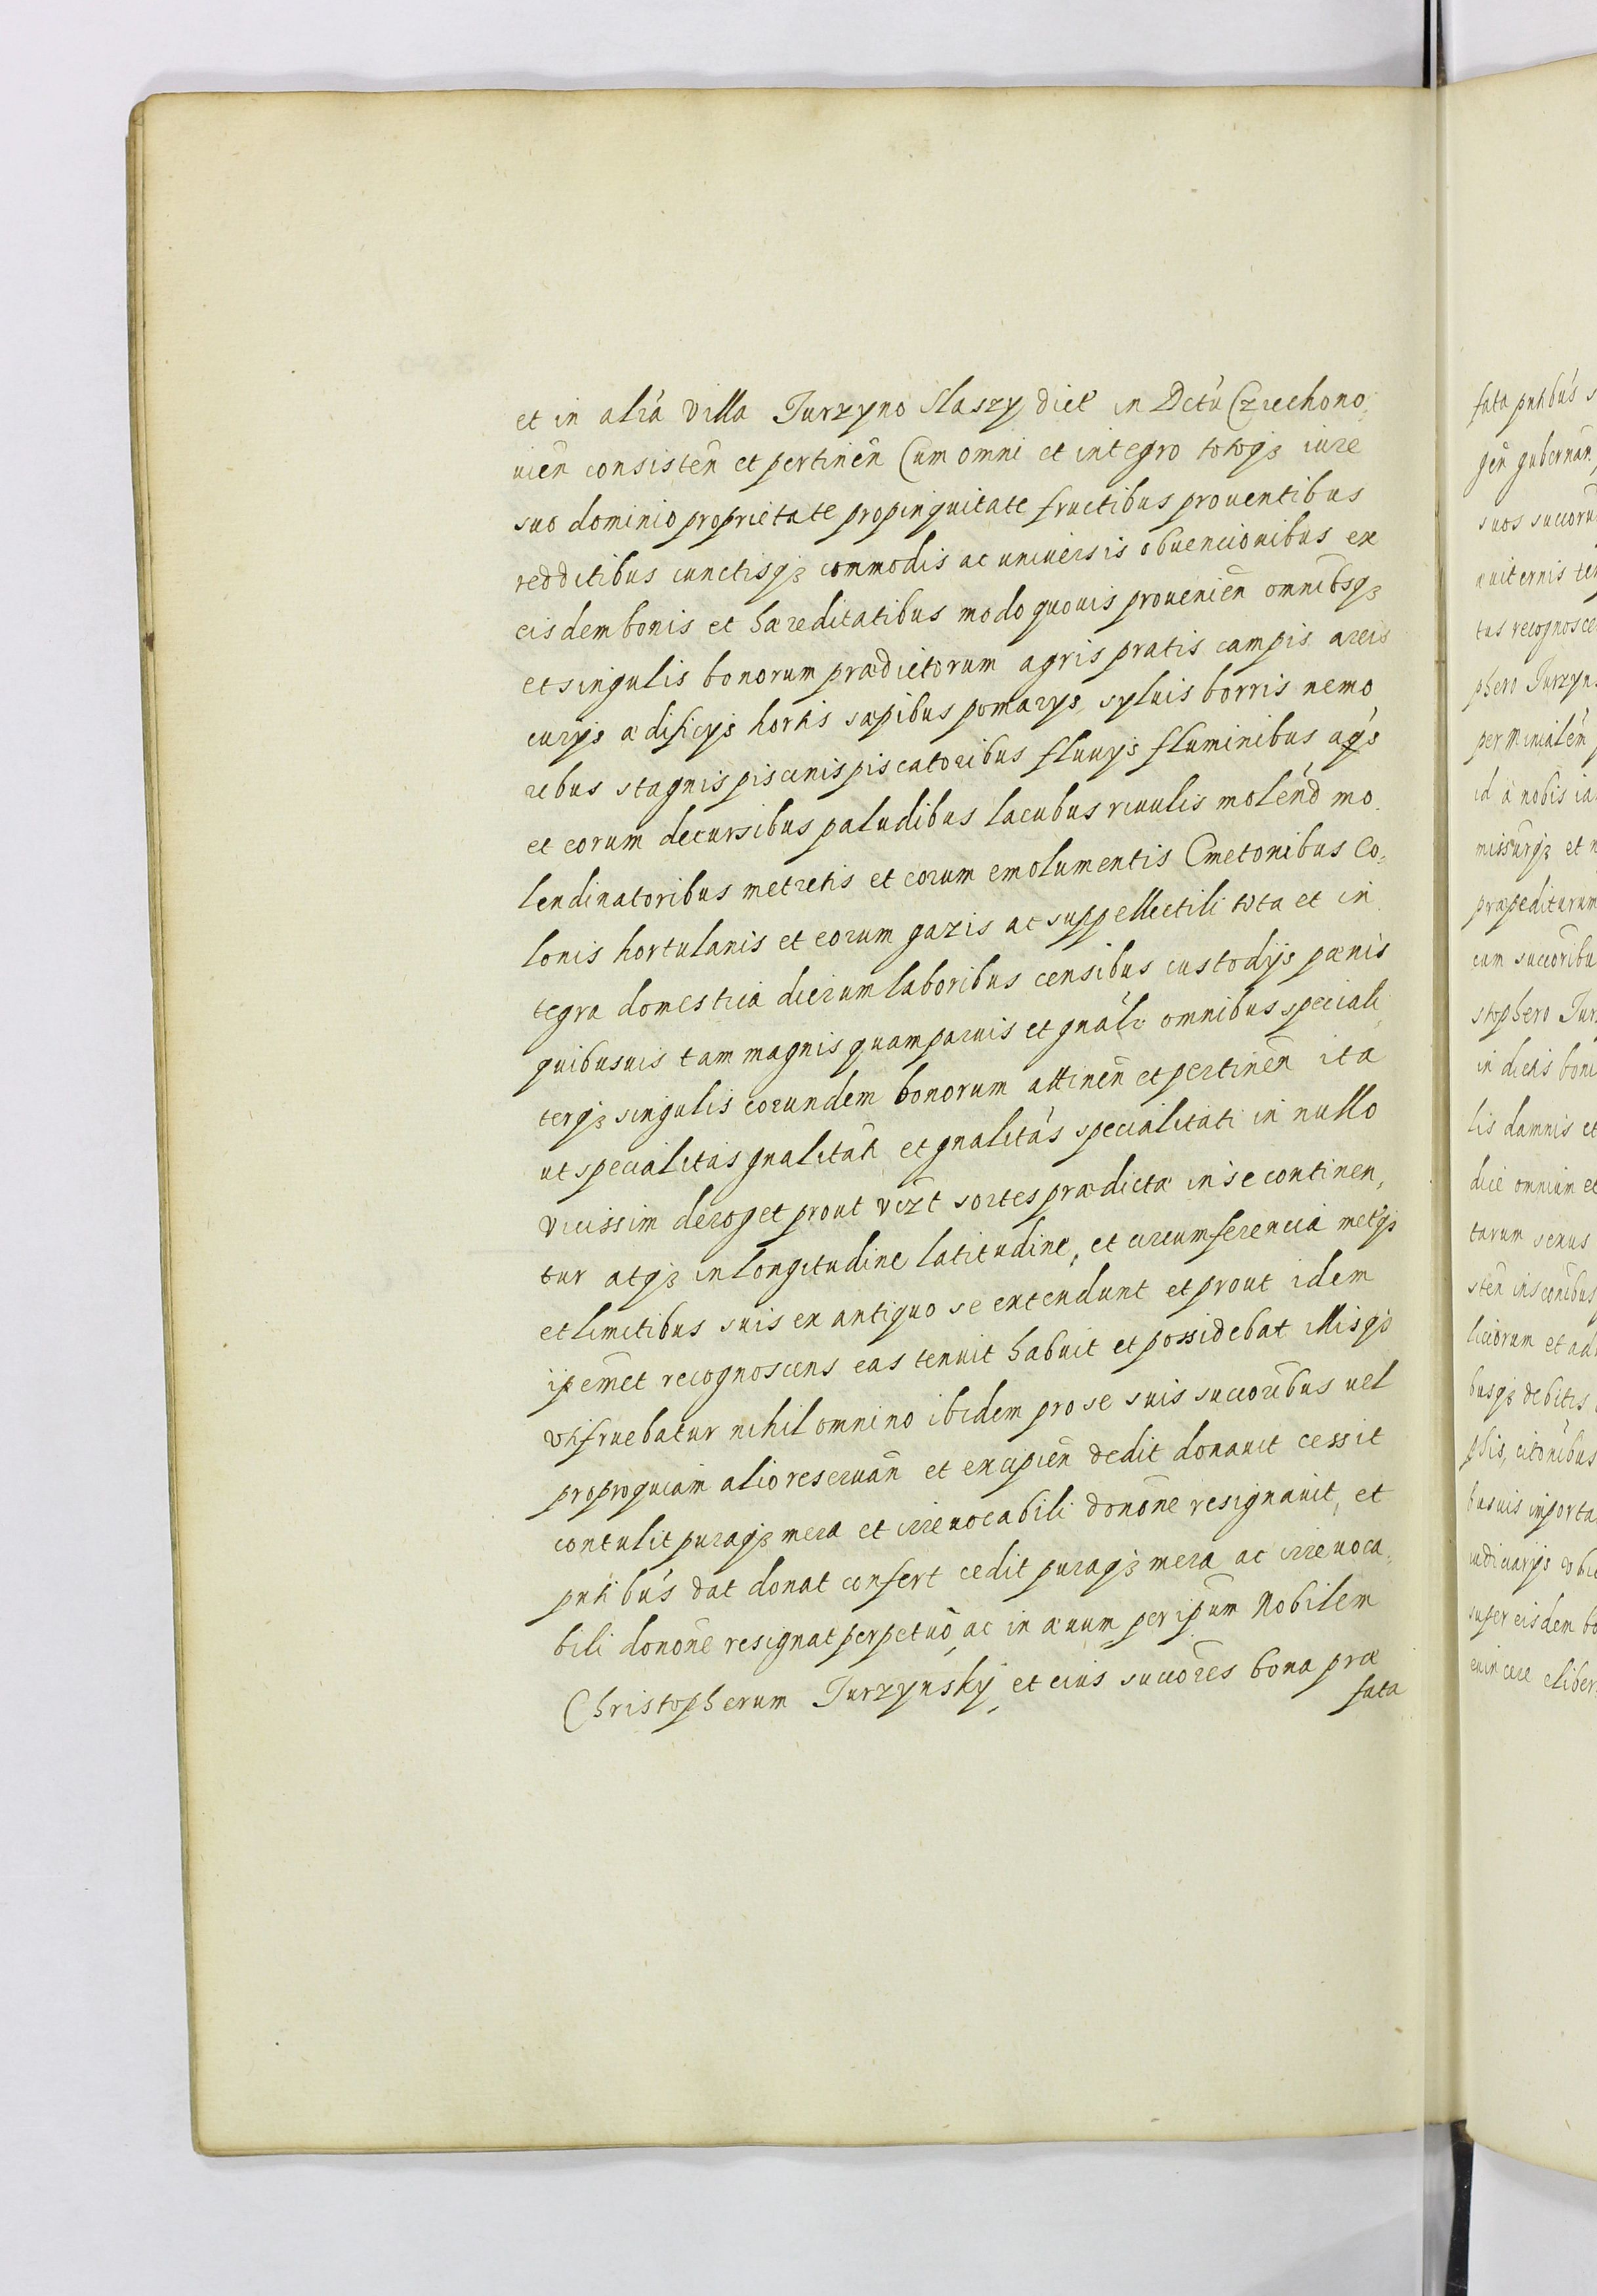 et in alia villa Jurzyno Slaszy dict in Dctu Czechono,
uien̄ consisten̄ et pertinen̄ Cum omni et integro totoqȝ iure
suo dominio proprietate propinquitate fructibus prouentibus
redditibus cunctisqȝ commodis ac uniuersis obuencionibus ex
eisdem bonis et hæreditatibus modo quouis prouenien̄ omnibsqȝ
et singulis bonorum prædictorum agris pratis campis areis
curijs ædificijs hortis sæpibus pomarys syluis borris nemo
ribus stagnis piscinis piscatoribus fluuijs fluminibus aq̃s
et eorum decursibus paludibus lacubus riuulis molend̄ mo,
lendinatoribus metretis et eorum emolumentis Cmetonibus Co,
lonis hortulanis et eorum gazis ac suppellectili tota et in
tegra domestica dierum laboribus censibus custodijs pænis
quibusuis tam magnis quam paruis et gnālr omnibus speciali,
terqȝ singulis eorundem bonorum attinen̄ et pertinen̄ ita
ut specialitas gnalitati et gnalitas specialitati in nullo
vicissim deroget prout vizt sortes prædictæ in se continen,
tur atqȝ in longitudine latitudine, et circumferencia metijs
et limitibus suis ex antiquo se extendunt et prout idem
ipsemet recognoscens eas tenuit habuit et possidebat illisqȝ
utifruebatur nihil omnino ibidem pro se suis succoribus uel
pro quiam alio reseruan̄ et excipien̄ dedit donauit cessit
contulit puraqȝ mera et irreuocabili donōne resignauit, et
pntibus dat donat confert cedit puraqȝ mera ac irreuoca,
bili donōne resignat perpetuò ac in æuum per ipsum Nobilem
Christopherum Jurzynsky, et eius succōres bona præ
fata
fata pntibus s
gen̄ gubernan
suos succoru
æuiternis te
tus recognosce
phero Jurzyn
id à nobis ia
missurqȝ et n
præpediturum
eum succoribu
stophero Jur
in dictis boni
lis damnis et
dice omnium et
tarum seruus
liciorum et ad
busqȝ debitis
busuis importa
super eisdem bo
euincere eliber